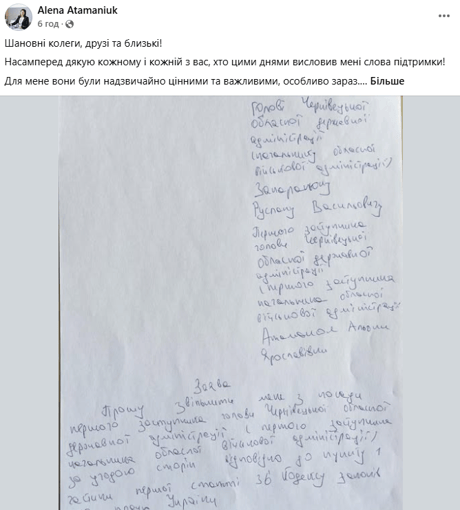 Alena Atamaniuk
6 год ·
Шановні колеги, друзі та близькі!
Насамперед дякую кожному і кожній з вас, хто цими днями висловив мені слова підтримки!
Для мене вони були надзвичайно цінними та важливими, особливо зараз.... Більше
Голові Чернівецької
обласної державної
адміністрації
(начальнику обласної
військової адміністрації)
Запаранюку
Руслану Васильовичу
Першого заступника
голови Чернівецької
обласної державної
адміністрації
(першого заступника
начальника обласної
військової адміністрації)
Атаманюк Альони
Ярославівни
Заява
Прошу звільнити мене з посади
першого заступника голови Чернівецької обласної
державної адміністрації (першого заступника
начальника обласної військової адміністрації)
за угодою сторін відповідно до пункту 1
частини першої статті 36 Кодексу законів
України